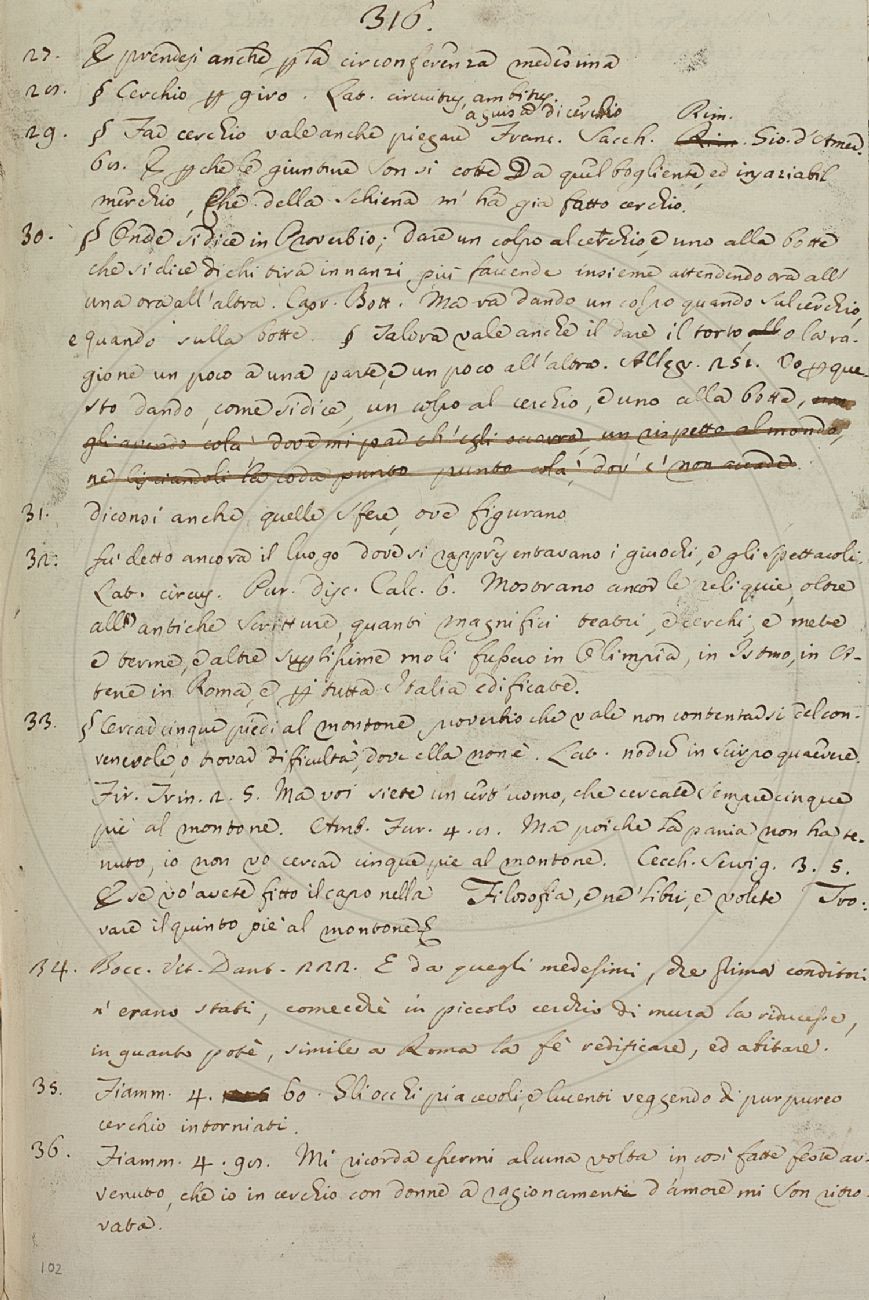 316.
27. E prendesi anche p la circonferenza medesima
28. § Cerchio p giro. Lat. circuitus, ambitus.
a guisa di cerchio Rim.
29. § Far cerchio vale anche piegare Franc. Sacch. Rim. Gio. d'Amer.
68. E p che le giunture son sì cotte Da quel bogliente, ed invariabil
merchio, Che della schiena m'ha già fatto cerchio.
30. § Onde si dice in Proverbio; dare un colpo al cerchio, e uno alla botte
che si dice di chi tira innanzi più faccende insieme attendendo ora all'
una ora all'altra. Capr. Bott. Ma va dando un colpo quando sul cerchio,
e quando sulla botte. § Talora vale anche il dare il torto, o la ra-
gione un poco a una parte, e un poco all'altra. Allegr. 251. Vo p que-
sto dando, come si dice, un colpo al cerchio, e uno alla botte,
gli avendo colà dove mi par ch'egli occorra, un rispetto al mondo,
nè lisciandoli la coda punto punto colà, dov'e' non accade.
31. diconsi anche quelle sfere, ove figurano
32. fu detto ancora il luogo dove si rappresentavano i giuochi, e gli spettacoli.
Lat. circus. Pur. Disc. Calc. 6. Mostrano ancor le reliquie, oltre
all'antiche scritture, quanti magnifici teatri, e cerchi, e mete
e terme, e altre superbissime moli fussero in Olimpia, in Istmo, in A-
tene in Roma, e p tutta Italia edificate.
33. § Cercar cinque piedi al montone proverbio che vale non contentarsi del con-
venevole, o trovar difficultà, dove ella non è. Lat. nodum in scirpo quaerere.
Fir. Trin. 2. 5. Ma voi siete un cert'uomo, che cercate sempre cinque
piè al montone. Amb. Fur. 4. 8. Ma poichè la pania non ha te-
nuto, io non vo cercar cinque piè al montone. Cecch. Servig. 3. 5.
E se vo' avete fitto il capo nella Filosofia, e ne' libri, e volete Tro-
vare il quinto piè al montone &
34. Bocc. Vit. Dant. 222. E da quegli medesimi, che prima conditori
n'erano stati, comecchè in piccolo cerchio di mura la riducesse,
in quanto potè, simile a Roma la fè redificare, ed abitare.
35. Fiamm. 4. 60. Gli occhi piacevoli, e lucenti veggendo di purpureo
cerchio intorniati.
36. Fiamm. 4. 98. Mi ricorda essermi alcuna volta in così fatte feste av-
venuto, che io in cerchio con donne a ragionamenti d'amore mi son ritro-
vata.
102